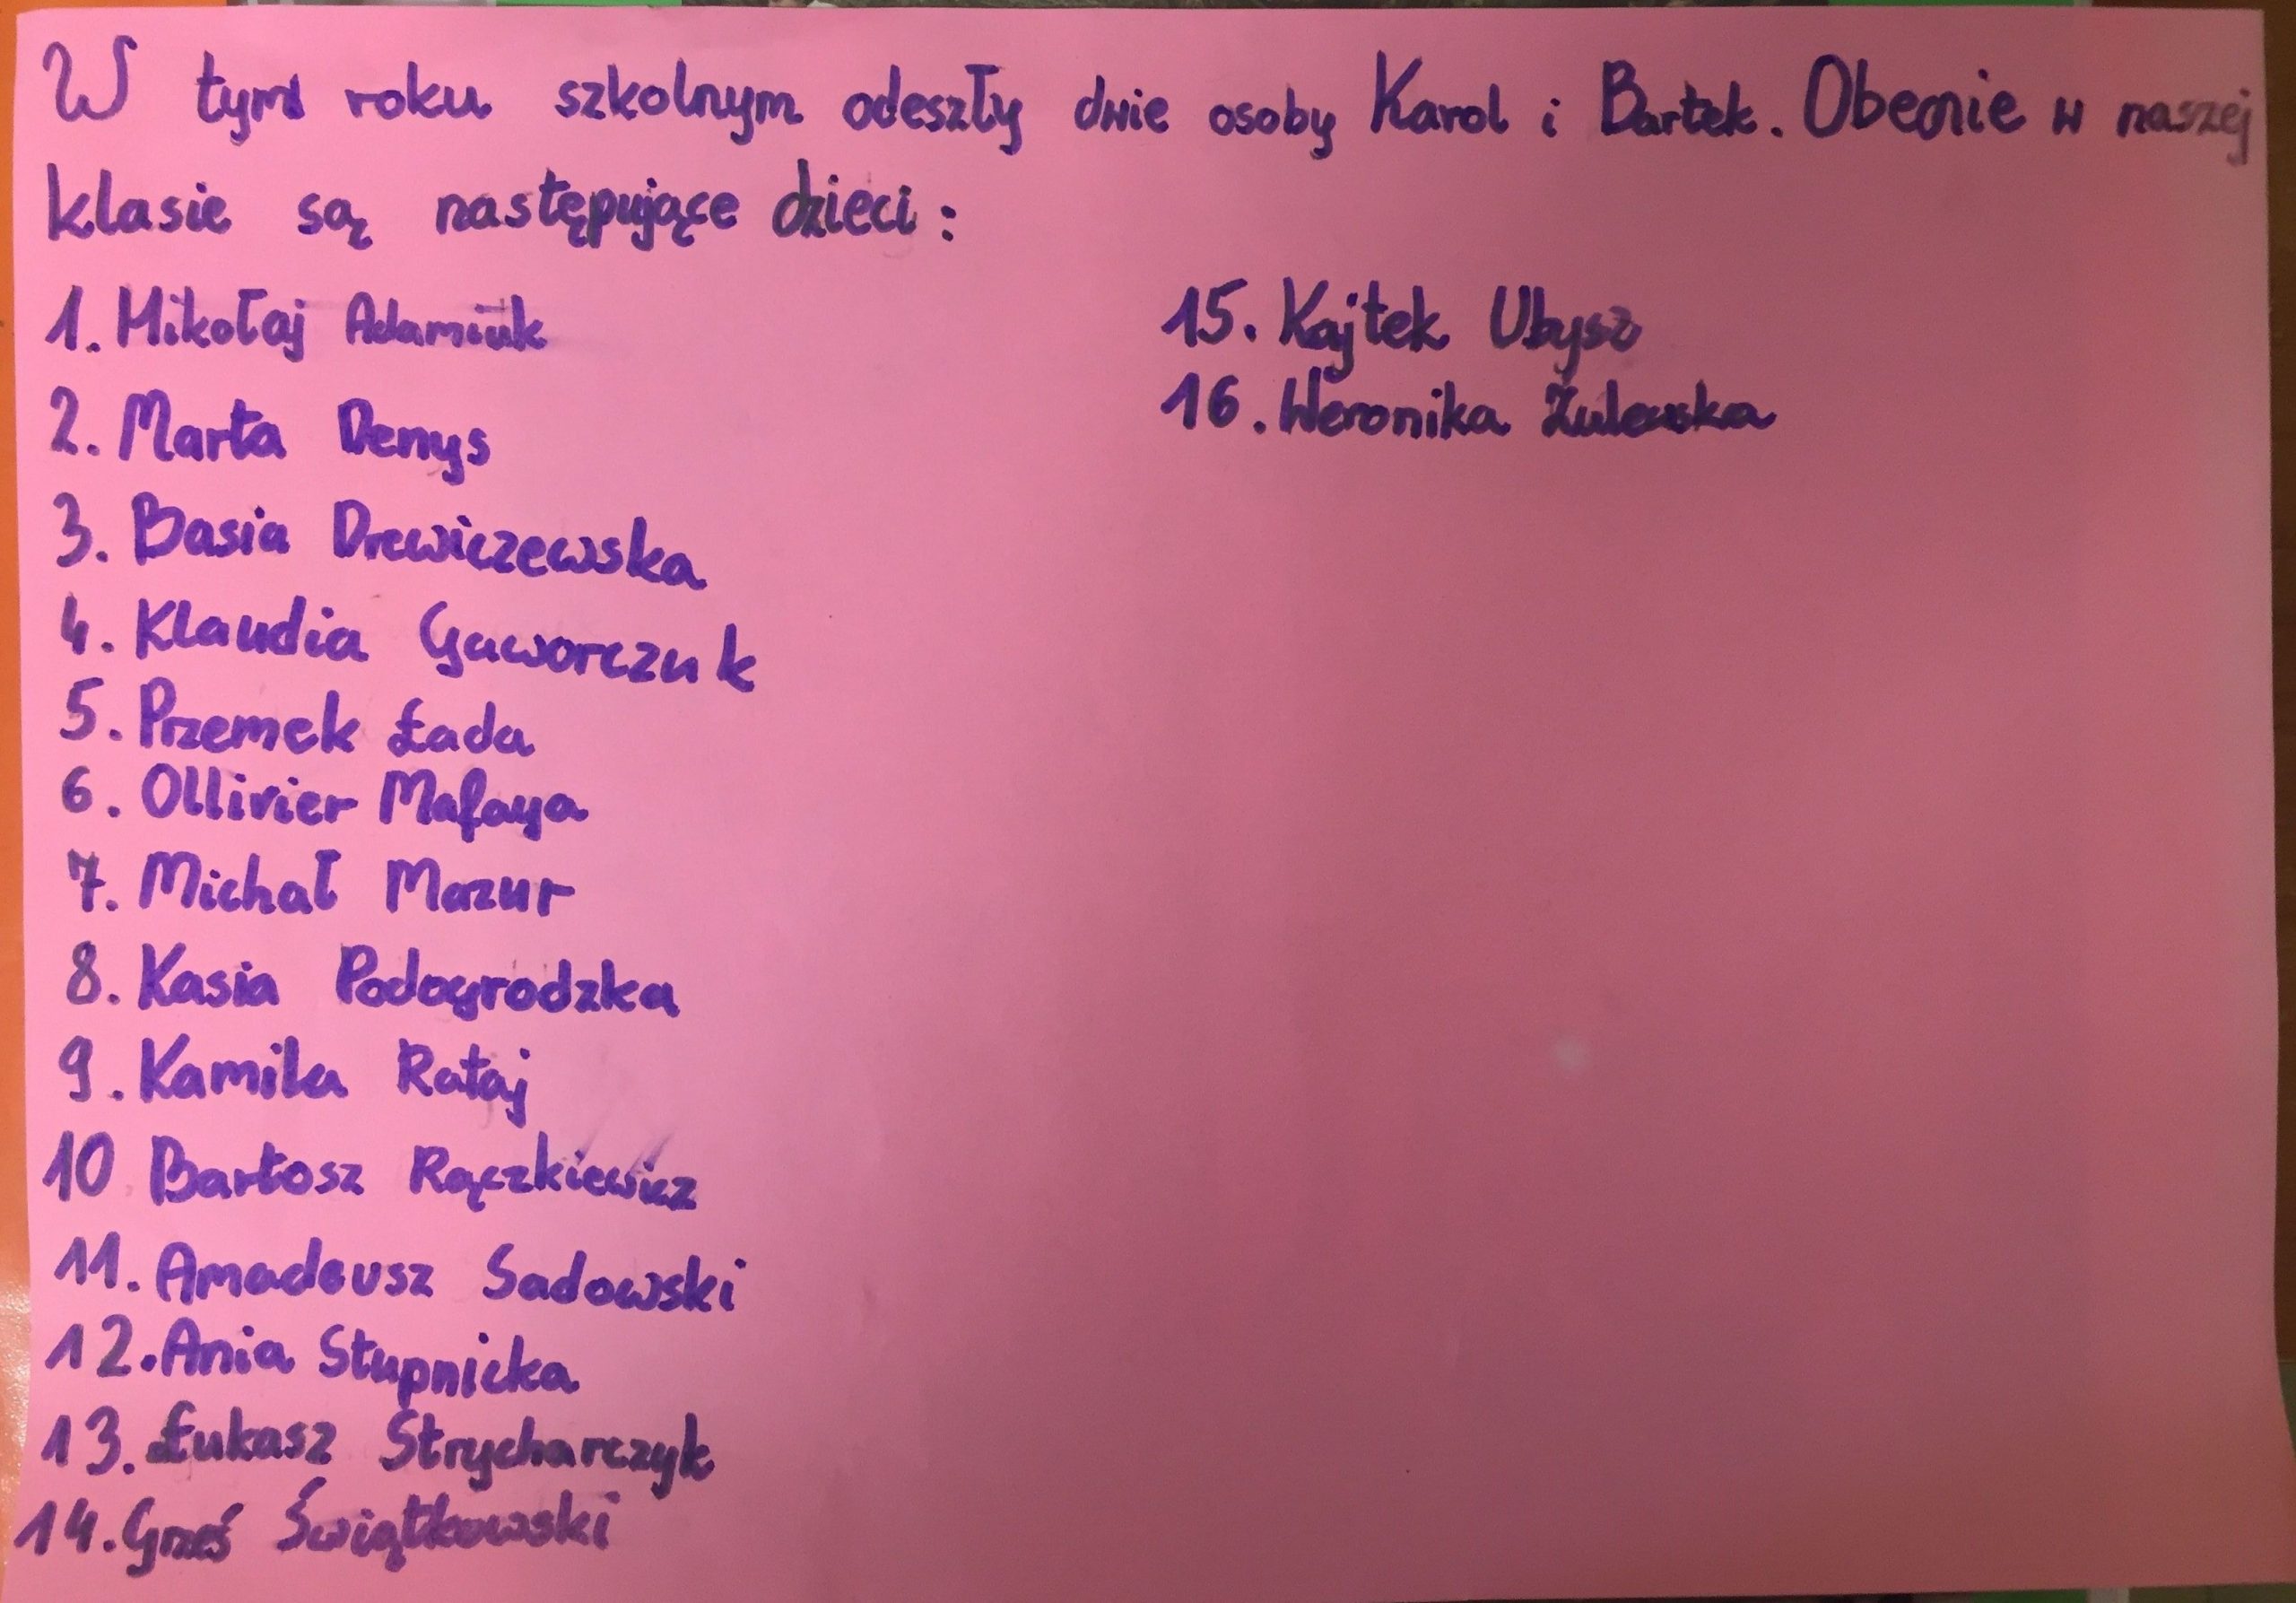 W tym roku szkolnym odeszły dwie osoby Karol i Bartek. Obecnie w naszej
klasie są następujące dzieci:
1. Mikołaj Adamiuk
2. Marta Denys
3. Basia Drewiczewska
4. Klaudia Gaworczuk
5. Przemek Łada
6. Ollivier Mafaya
7. Michał Mazur
8. Kasia Podogrodzka
9. Kamila Rataj
10 Bartosz Rączkiewicz
11. Amadeusz Sadowski
12. Ania Stupnicka
13. Łukasz Strycharczyk
14. Grześ Świątkowski
15. Kajtek Ubysz
16. Weronika Żulewska